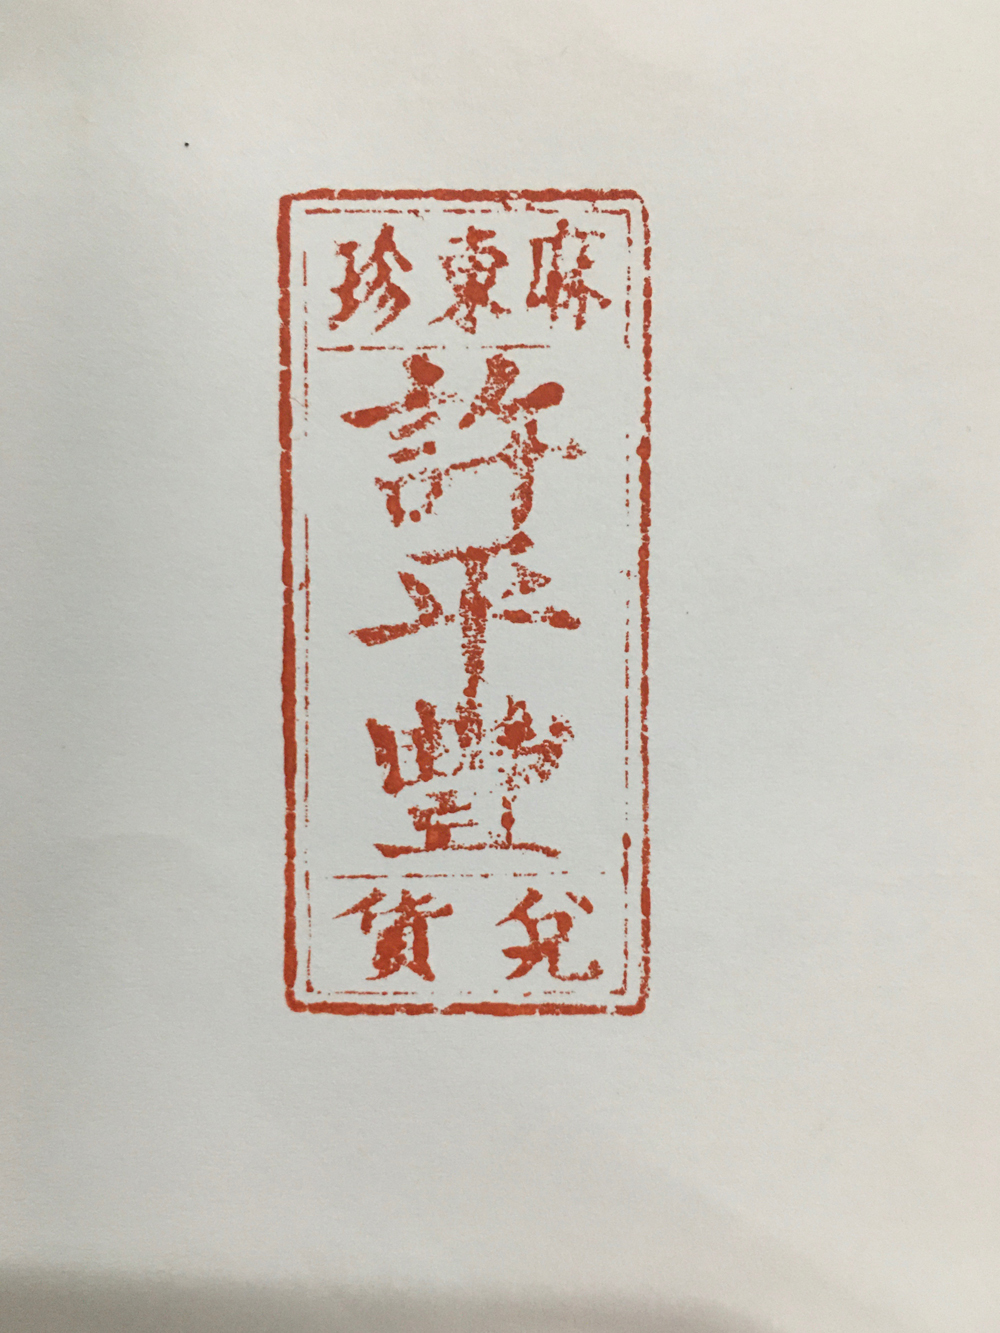 麻東珍
許平豐
兌貨